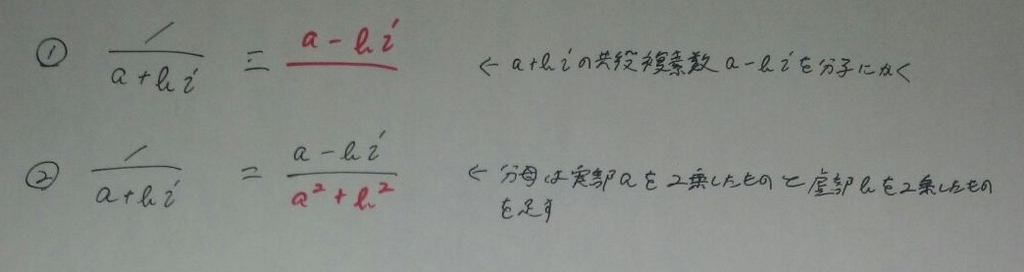 ① 1/(a+bi) = (a-bi)/ ← a+biの共役複素数a-biを分子にかく
② 1/(a+bi) = (a-bi)/(a²+b²) ← 分母は実部aを2乗したものと虚部bを2乗したもの
を足す